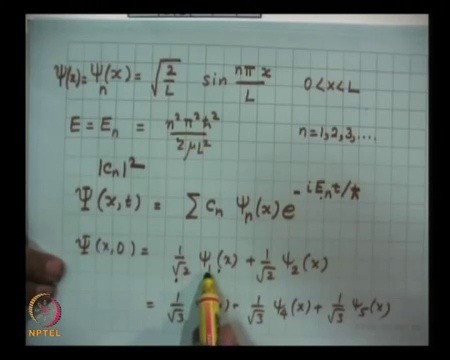 Ψ(x) = Ψₙ(x) = √(2/L) sin nπx/L 0<x<L
E = Eₙ = n²π²ħ²/2μL² n=1,2,3,....
|cₙ|²
Ψ(x,t) = Σ cₙ Ψₙ(x) e^(-iEₙt/ħ)
Ψ(x,0) = 1/√2 Ψ₁(x) + 1/√2 Ψ₂(x)
= 1/√3 ) + 1/√3 Ψ₄(x) + 1/√3 Ψ₅(x)
NPTEL